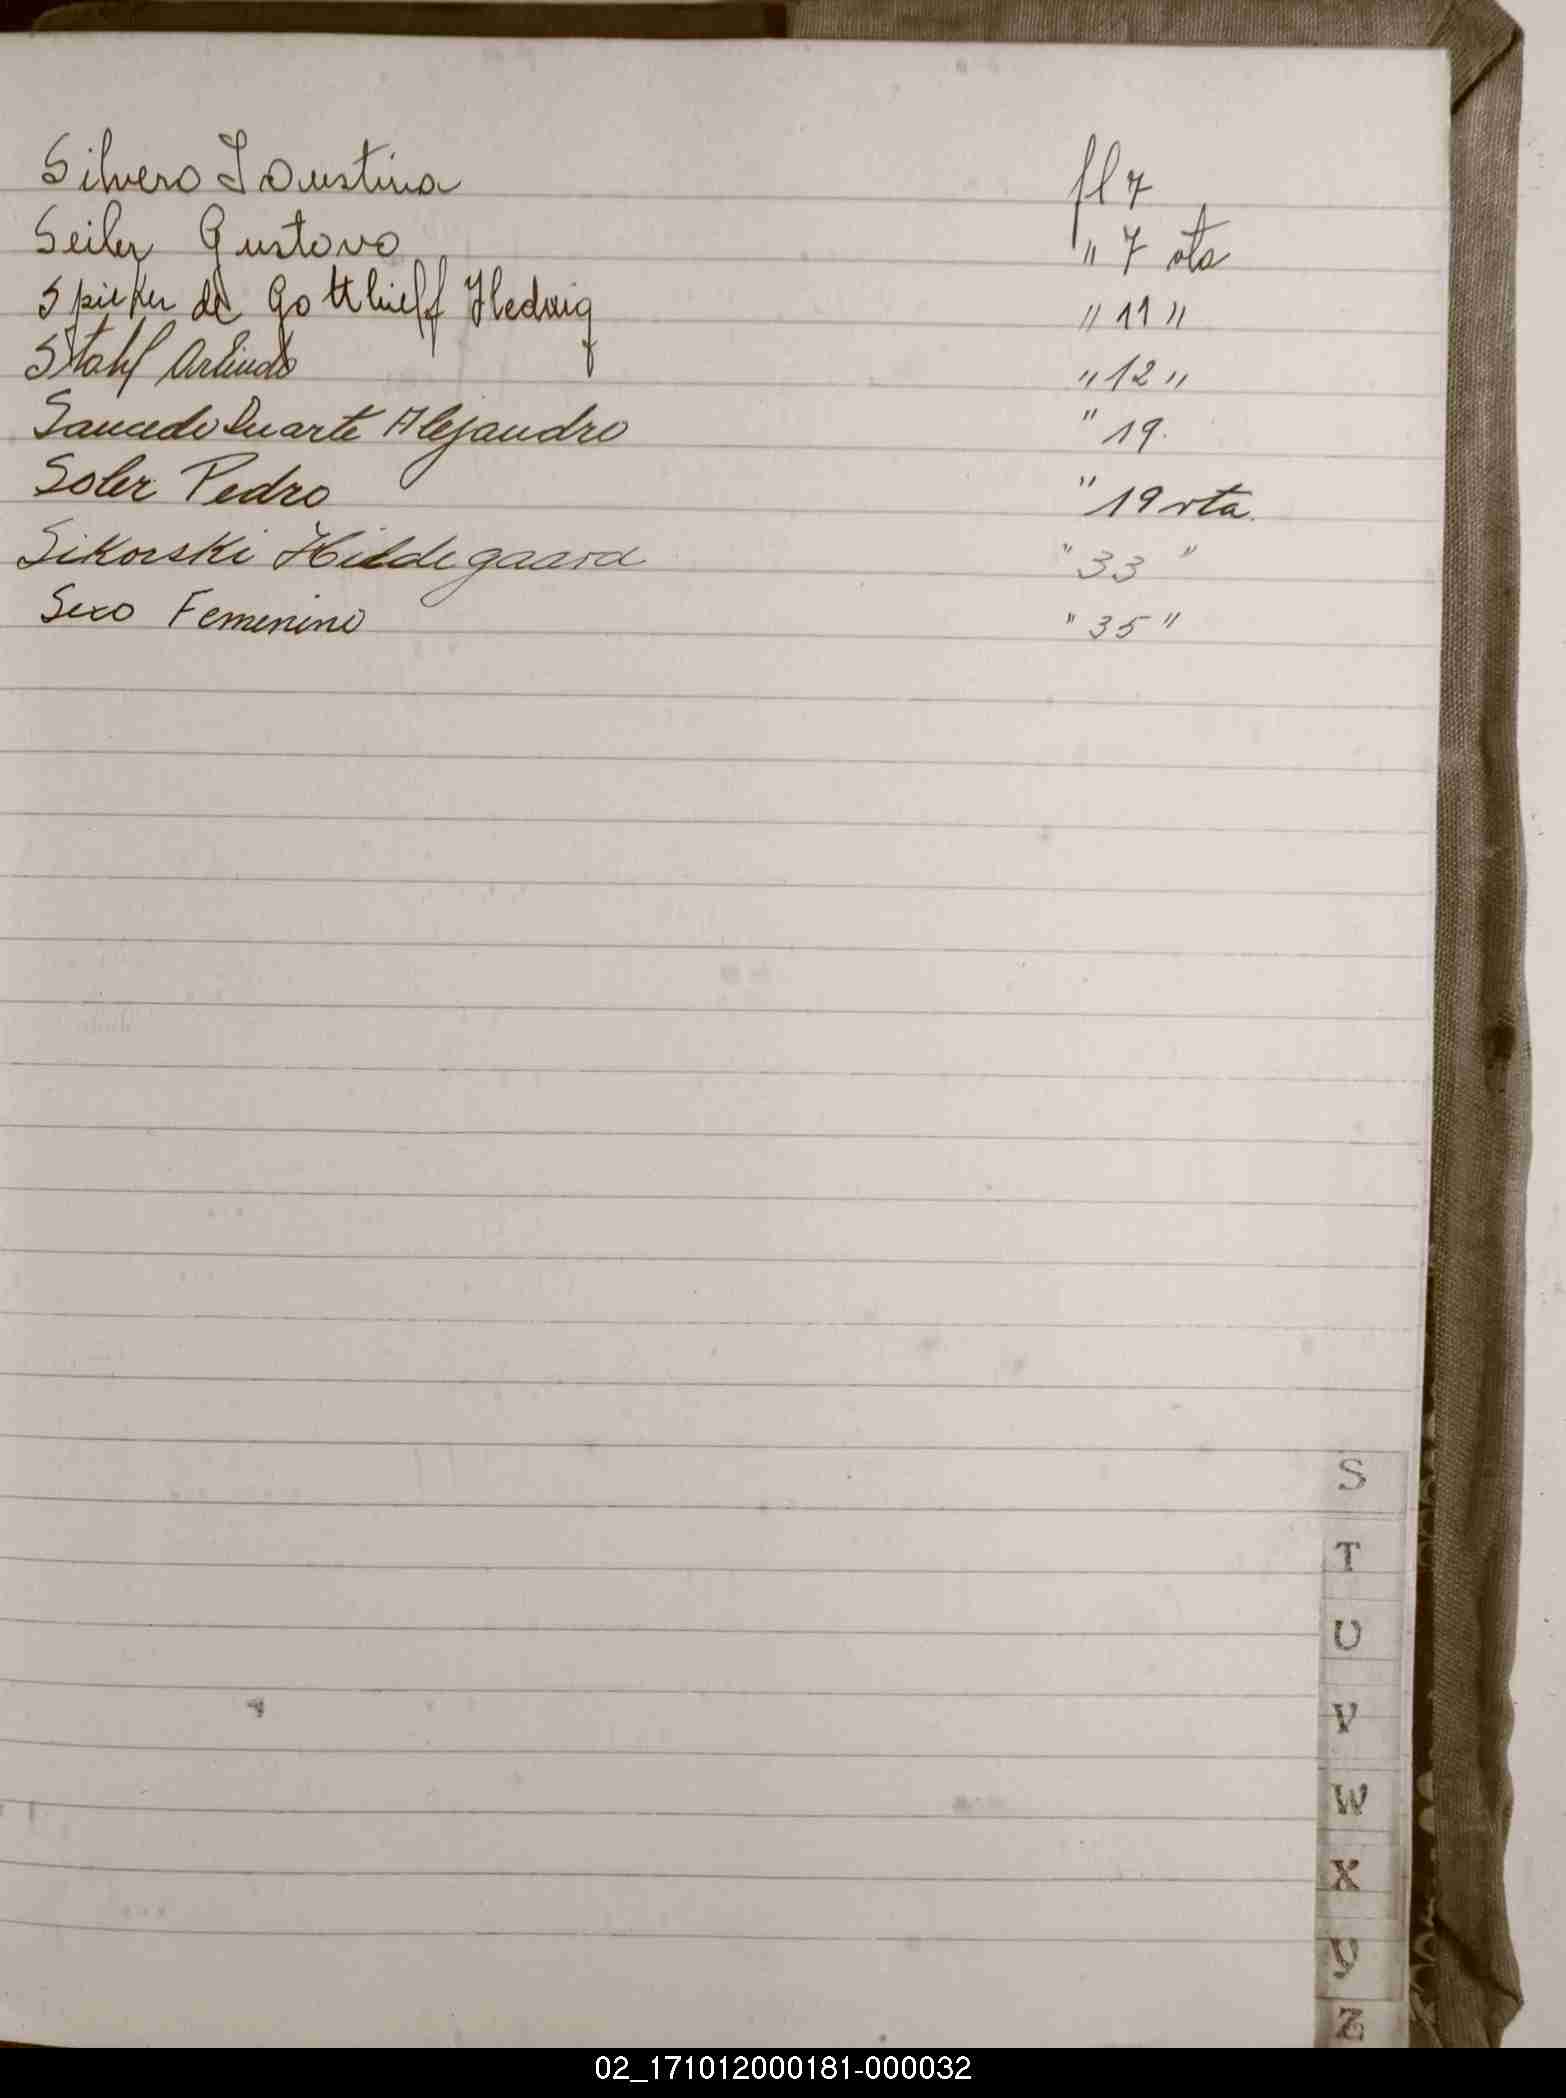 Silvero Faustina fl 7
Seiler Gustavo " 7 vta
Spieker de Gottlieff Hedwig " 11 "
Stahl Arlindo " 12 "
Saucedo Duarte Alejandro " 19.
Soler Pedro " 19 vta.
Sikorski Hildegaard " 33 "
Sexo Femenino " 35 "
S
T
U
V
W
X
Y
Z
02_171012000181-000032